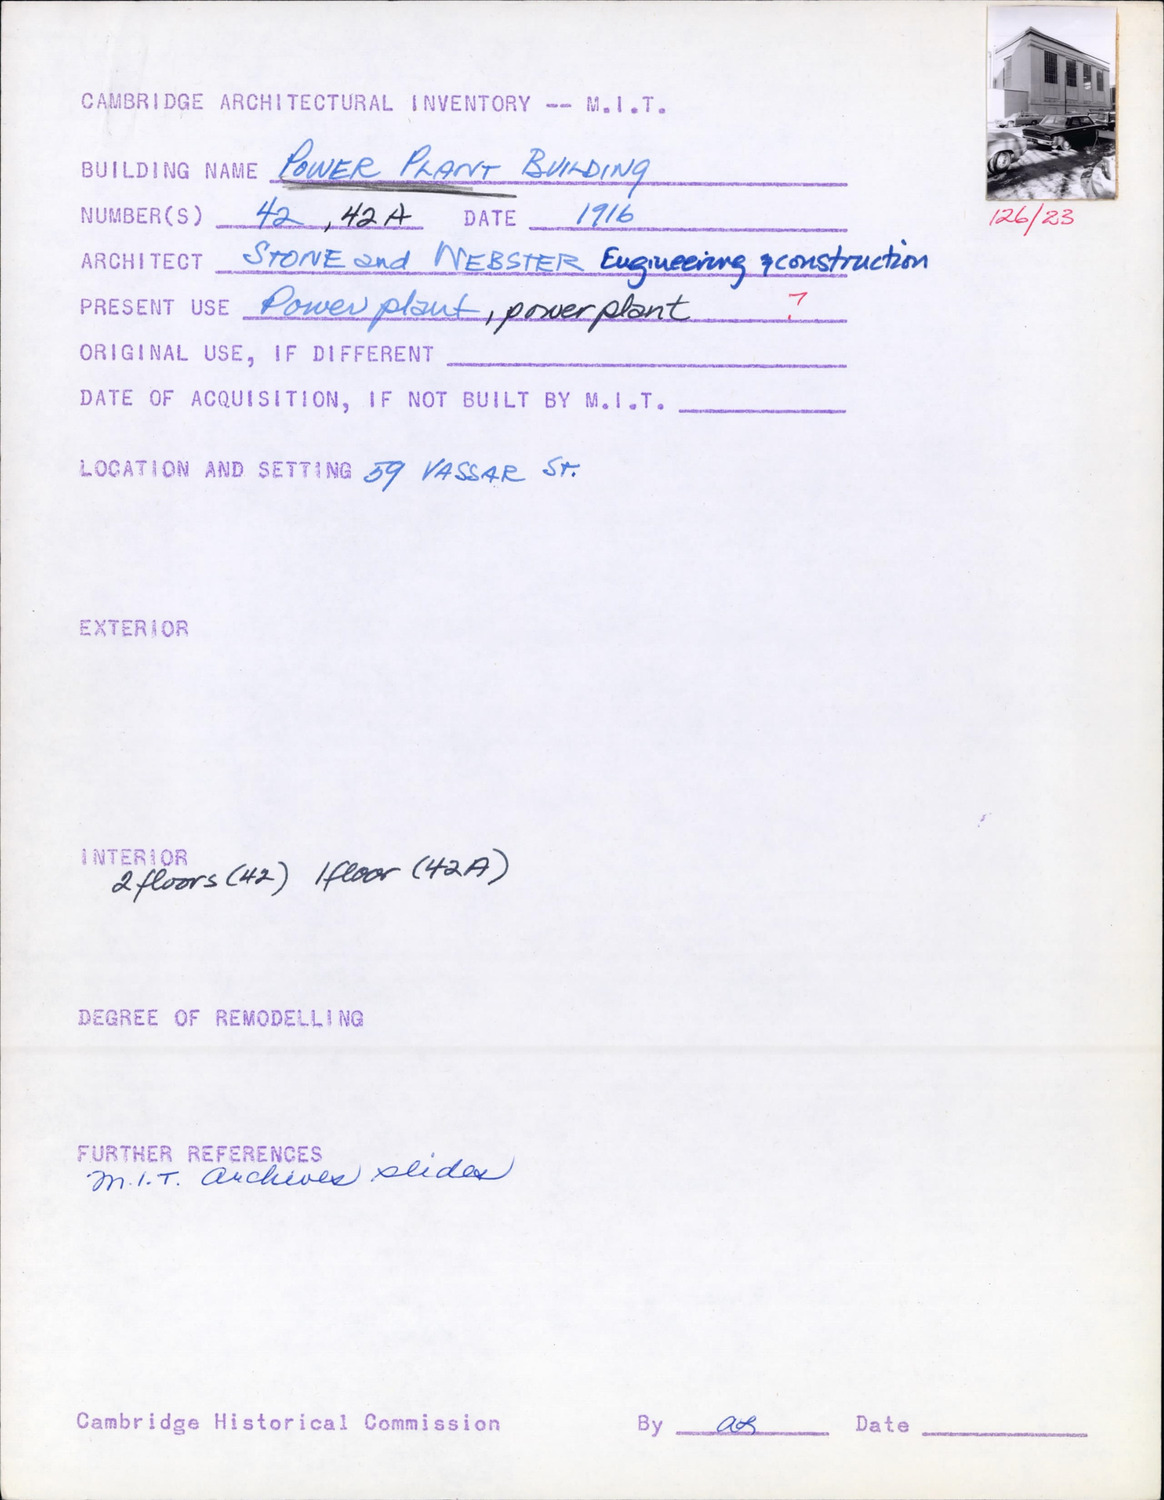 CAMBRIDGE ARCHITECTURAL INVENTORY -- M.I.T.
126/23
BUILDING NAME POWER PLANT BUILDING
NUMBER(S) 42, 42A DATE 1916
ARCHITECT STONE and WEBSTER Engineering & construction
PRESENT USE Power plant, power plant ?
ORIGINAL USE, IF DIFFERENT
DATE OF ACQUISITION, IF NOT BUILT BY M.I.T.
LOCATION AND SETTING 59 VASSAR ST.
EXTERIOR
INTERIOR
2 floors (42) 1 floor (42A)
DEGREE OF REMODELLING
FURTHER REFERENCES
M.I.T. Archives slides
Cambridge Historical Commission By Date